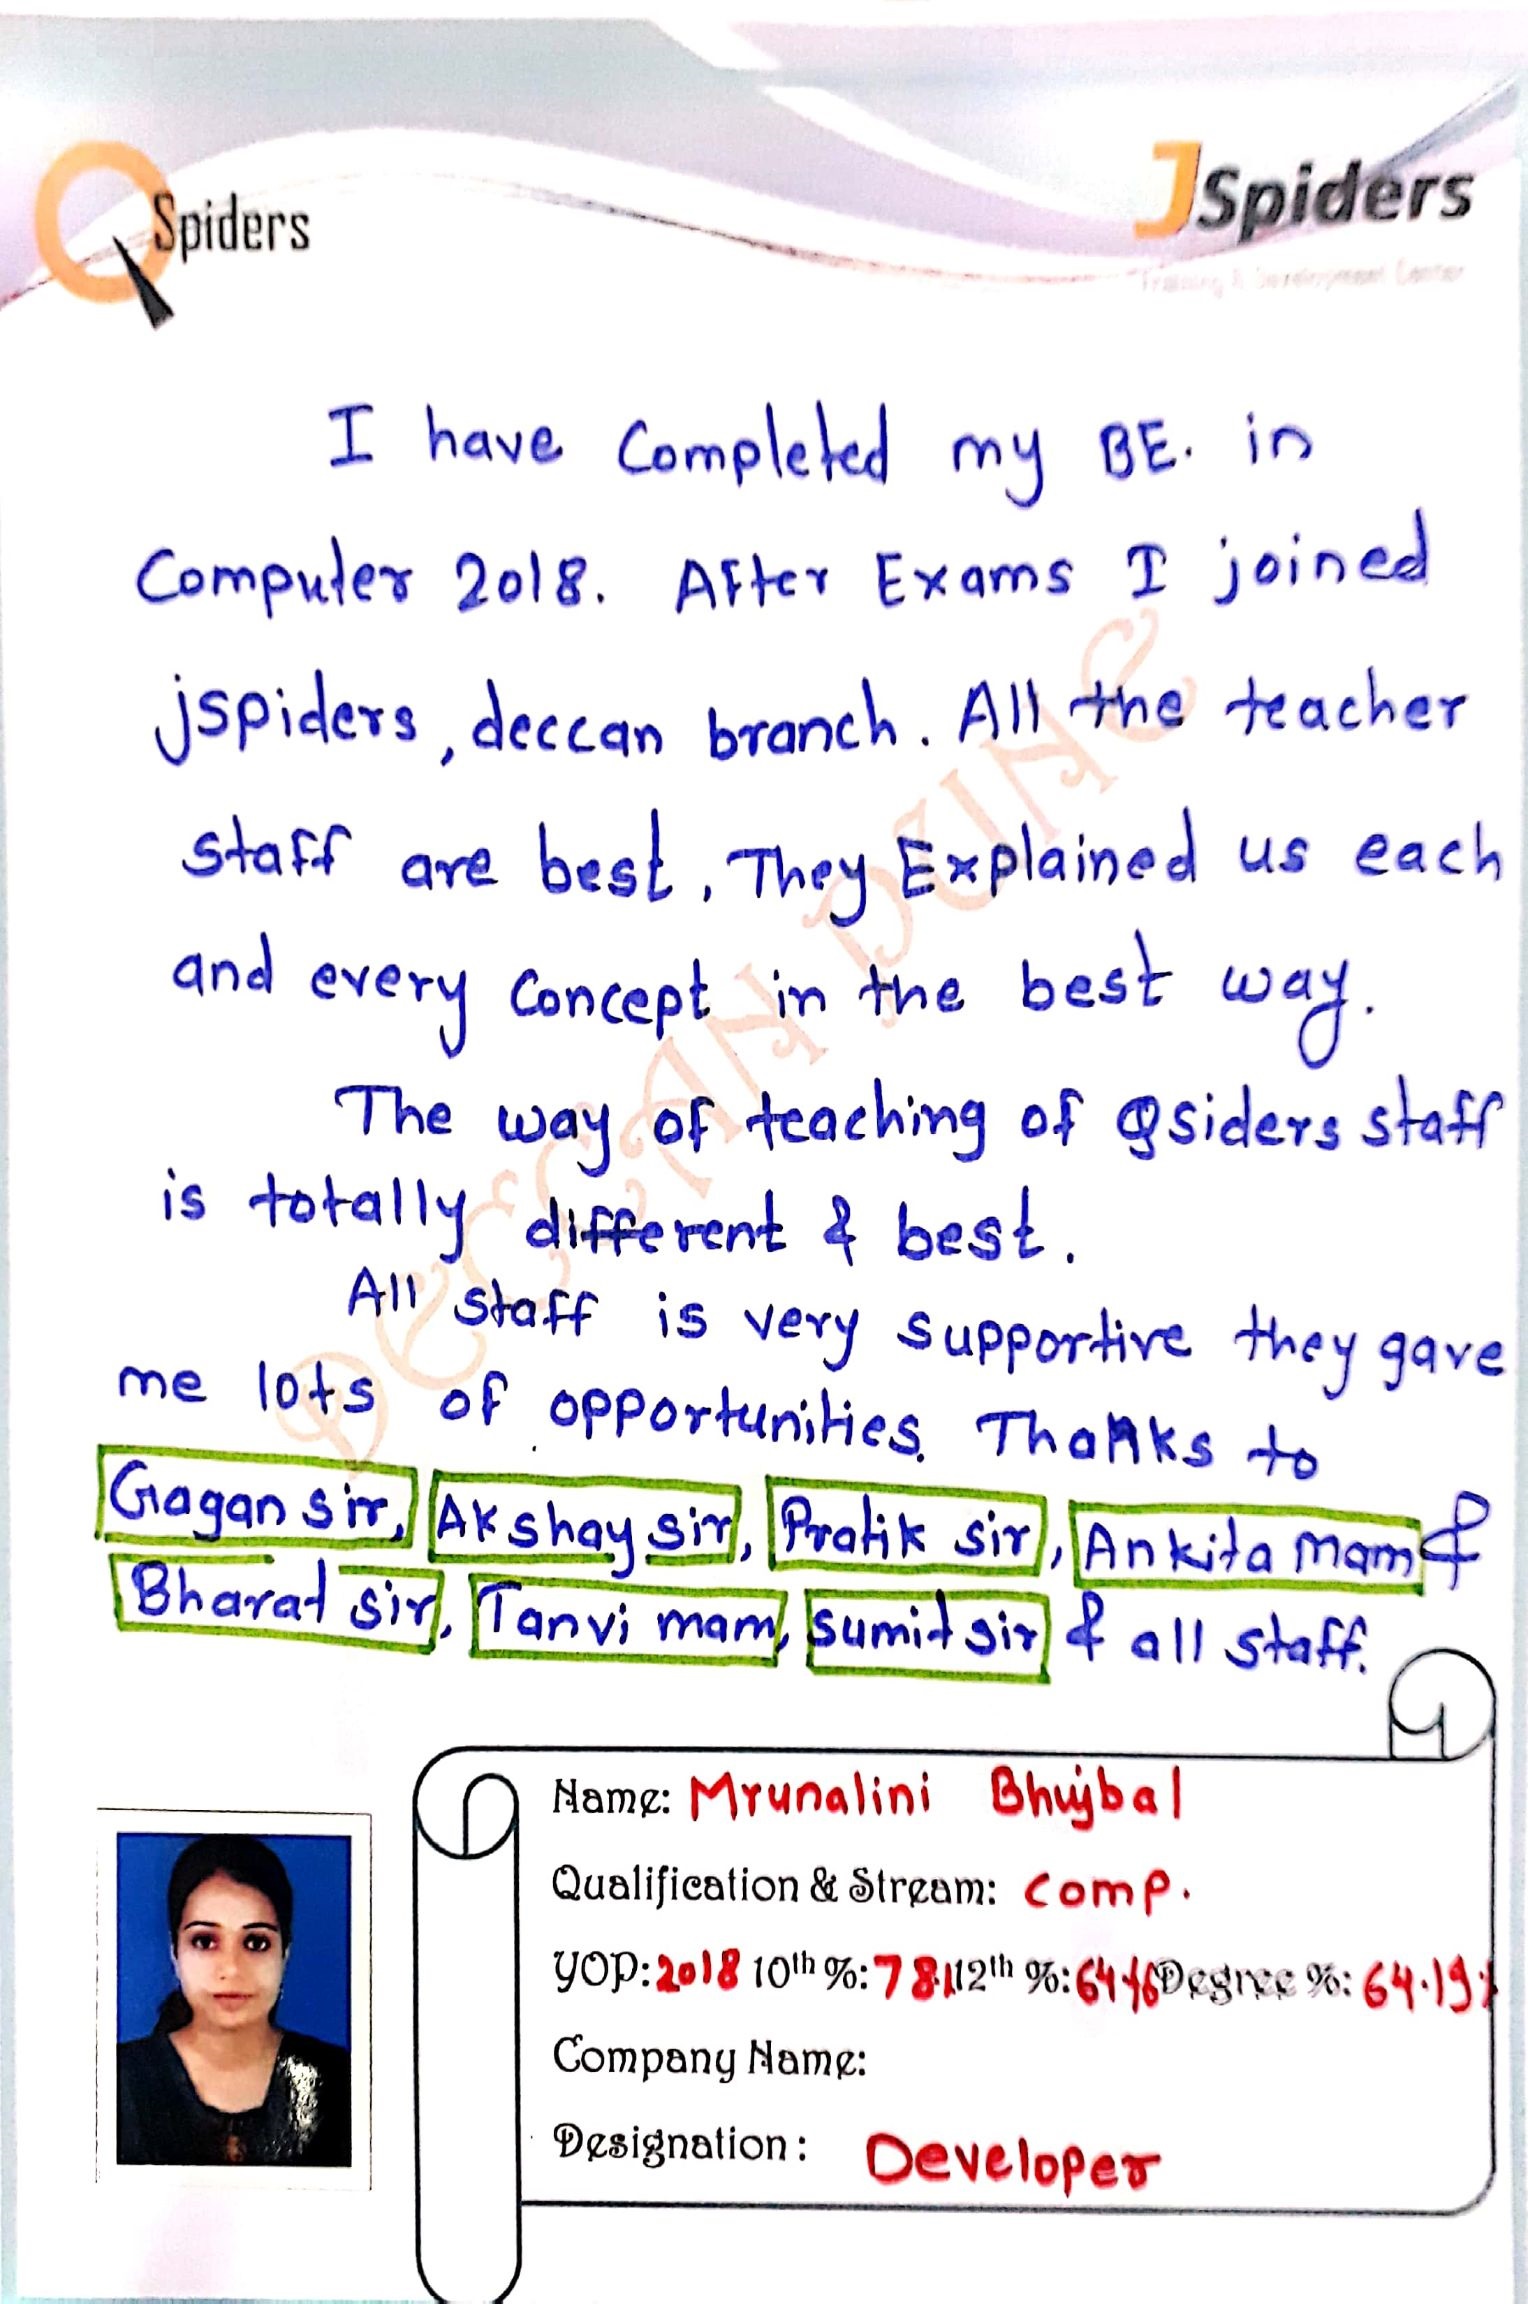 QSpiders
JSpiders
Training & Development Center
I have Completed my BE. in
Computer 2018. After Exams I joined
jspiders, deccan branch. All the teacher
staff are best. They Explained us each
and every Concept in the best way.
The way of teaching of Qsiders staff
is totally different & best.
All staff is very supportive they gave
me lots of opportunities. Thanks to
Gagan sir, Akshay sir, Pratik sir, Ankita mam &
Bharat sir, Tanvi mam, sumit sir & all staff.
DECCAN PUNE
Name: Mrunalini Bhujbal
Qualification & Stream: comp.
YOP: 2018 10th %: 78 12th %: Degree %: 64.19%
Company Name:
Designation: Developer